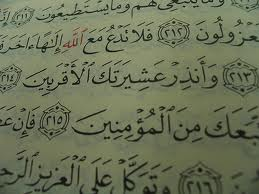 لَهُمْ وَمَا يَسْتَطِيعُونَ ٢١١
عْزُولُونَ ٢١٢ فَلَا تَدْعُ مَعَ ٱللَّهِ إِلَٰهًا ءَاخَرَ فَ
٢١٣ وَأَنذِرْ عَشِيرَتَكَ ٱلْأَقْرَبِينَ ٢١٤
تَّبَعَكَ مِنَ ٱلْمُؤْمِنِينَ ٢١٥ فَإِنْ عَ
٢١٦ وَتَوَكَّلْ عَلَى ٱلْعَزِيزِ ٱلرَّ